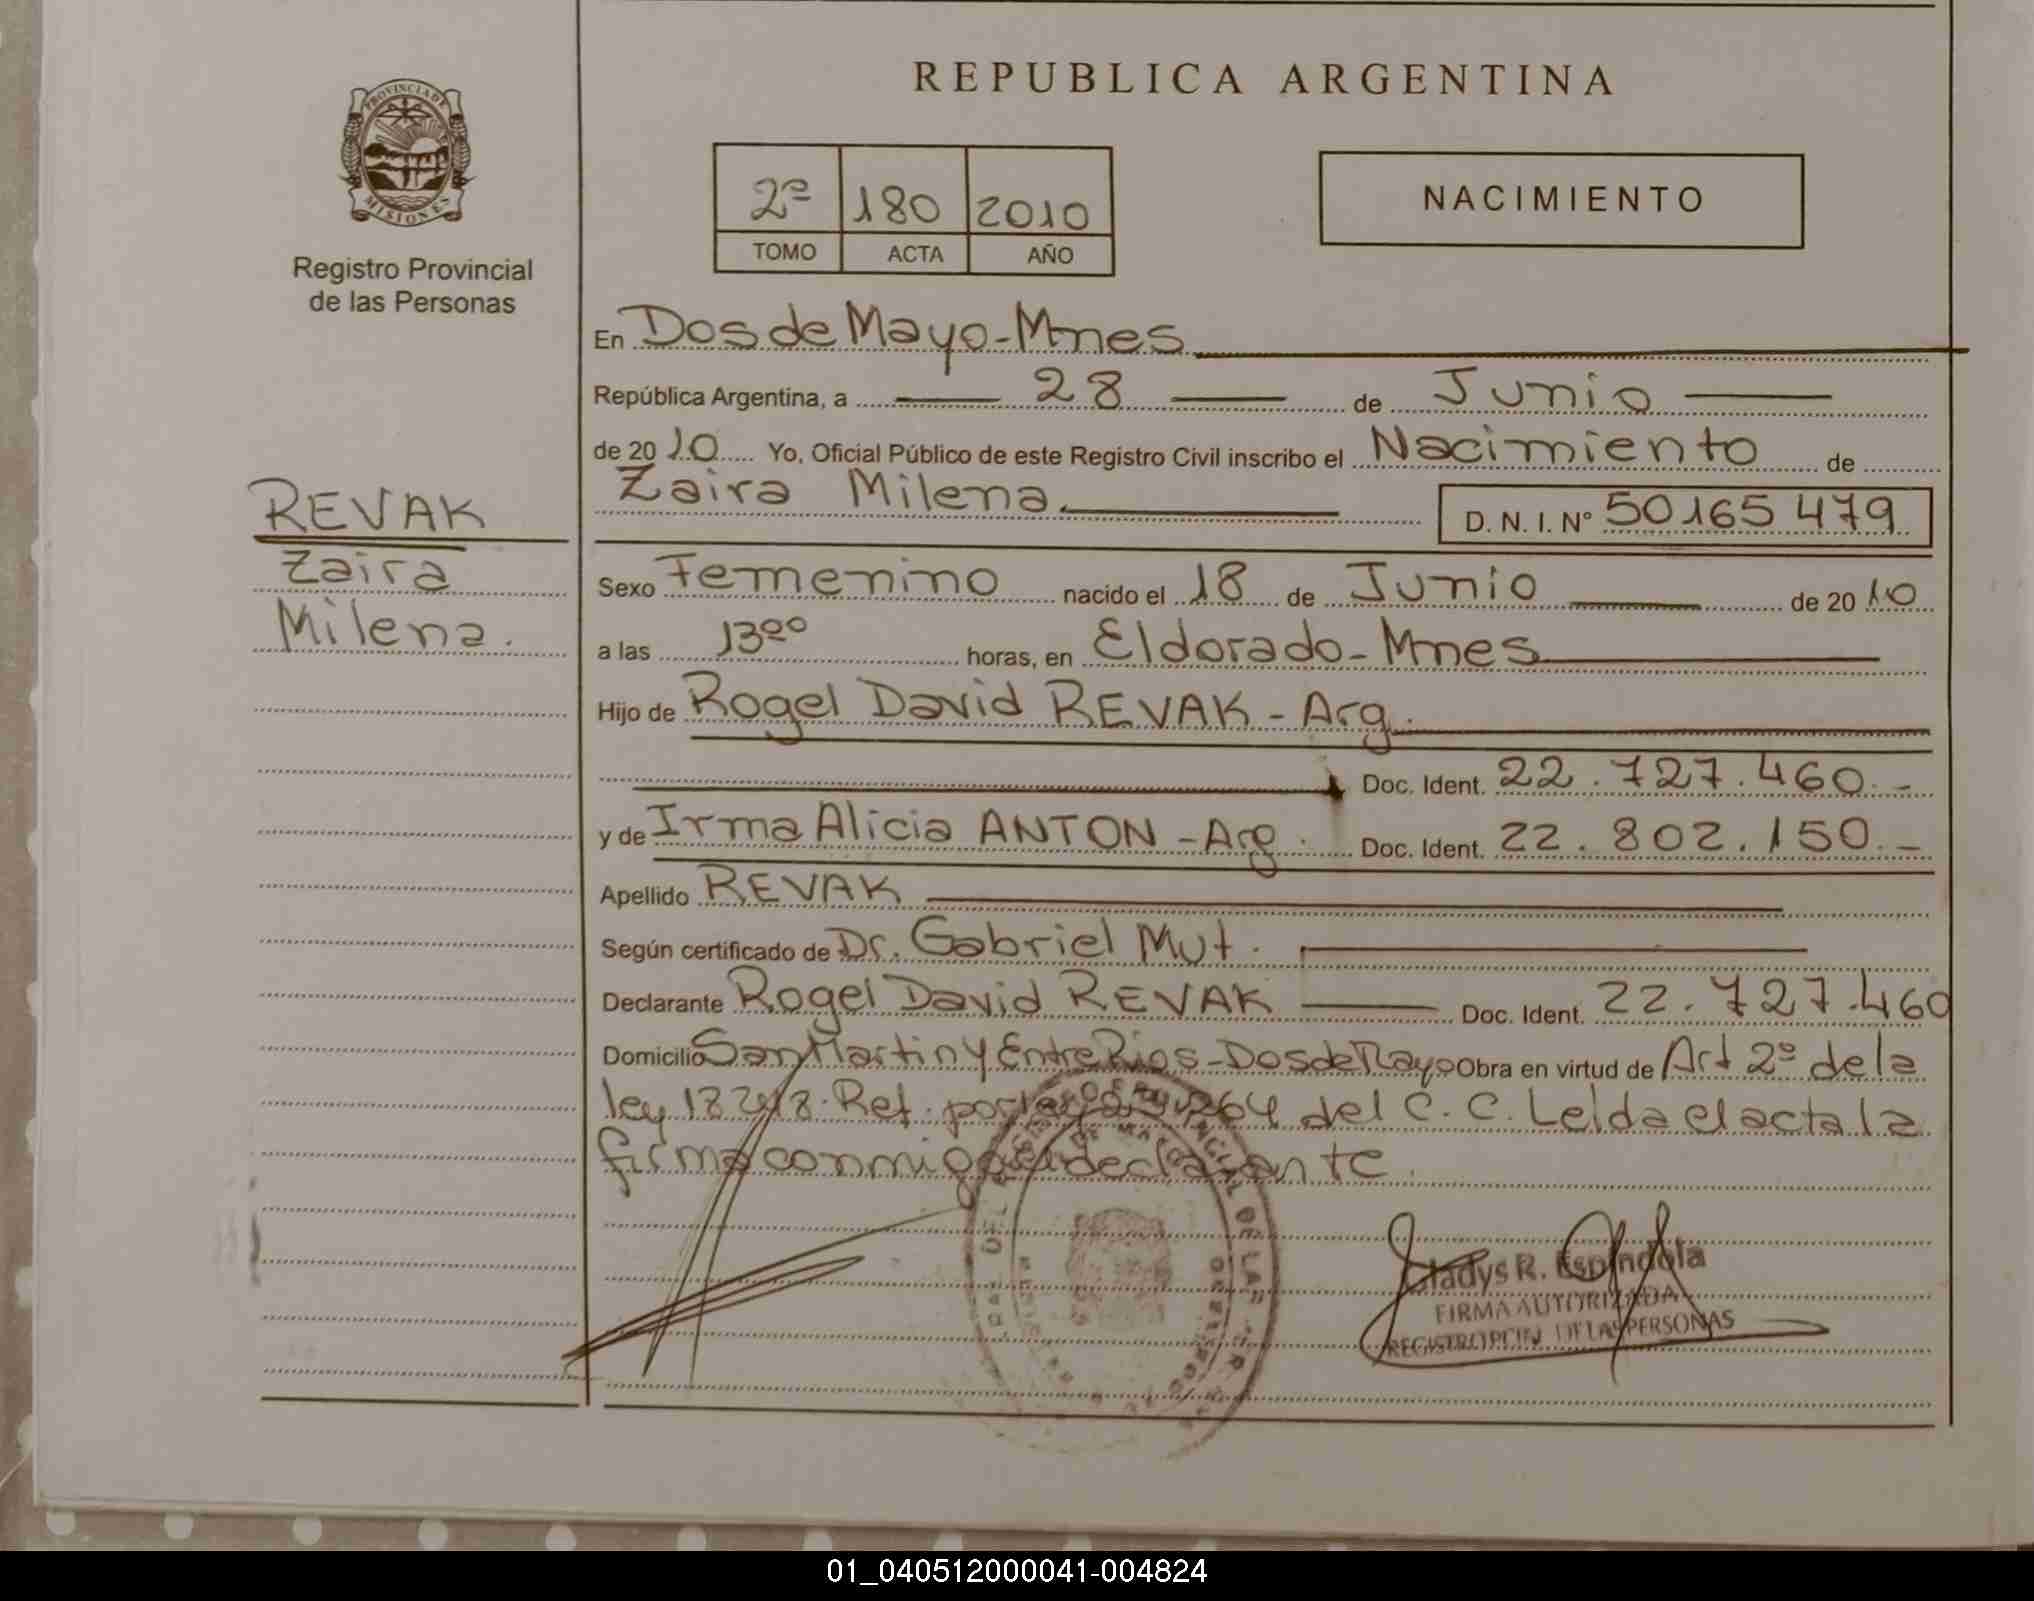 REPUBLICA ARGENTINA
PROVINCIA DE
MISIONES
Registro Provincial
de las Personas
2º 180 2010
TOMO ACTA AÑO
NACIMIENTO
En Dos de Mayo - Mnes
República Argentina, a 28 de Junio
de 2010 Yo, Oficial Público de este Registro Civil inscribo el Nacimiento de
Zaira Milena
D. N. I. Nº 50165479
REVAK
Zaira
Milena.
Sexo Femenino nacido el 18 de Junio de 2010
a las 13ºº horas, en Eldorado - Mnes
Hijo de Rogel David REVAK - Arg.
Doc. Ident. 22.727.460.-
y de Irma Alicia ANTON - Arg. Doc. Ident. 22.802.150.-
Apellido REVAK
Según certificado de Dr. Gabriel Mut.
Declarante Rogel David REVAK Doc. Ident. 22.727.460
Domicilio San Martin y Entre Rios - Dos de Mayo Obra en virtud de Art 2º de la
ley Ref. por 264 del C. C. Leida el acta la
firma conmigo el declarante.
Gladys R. Espindola
FIRMA AUTORIZADA
REGISTRO PCIAL DE LAS PERSONAS
01_040512000041-004824